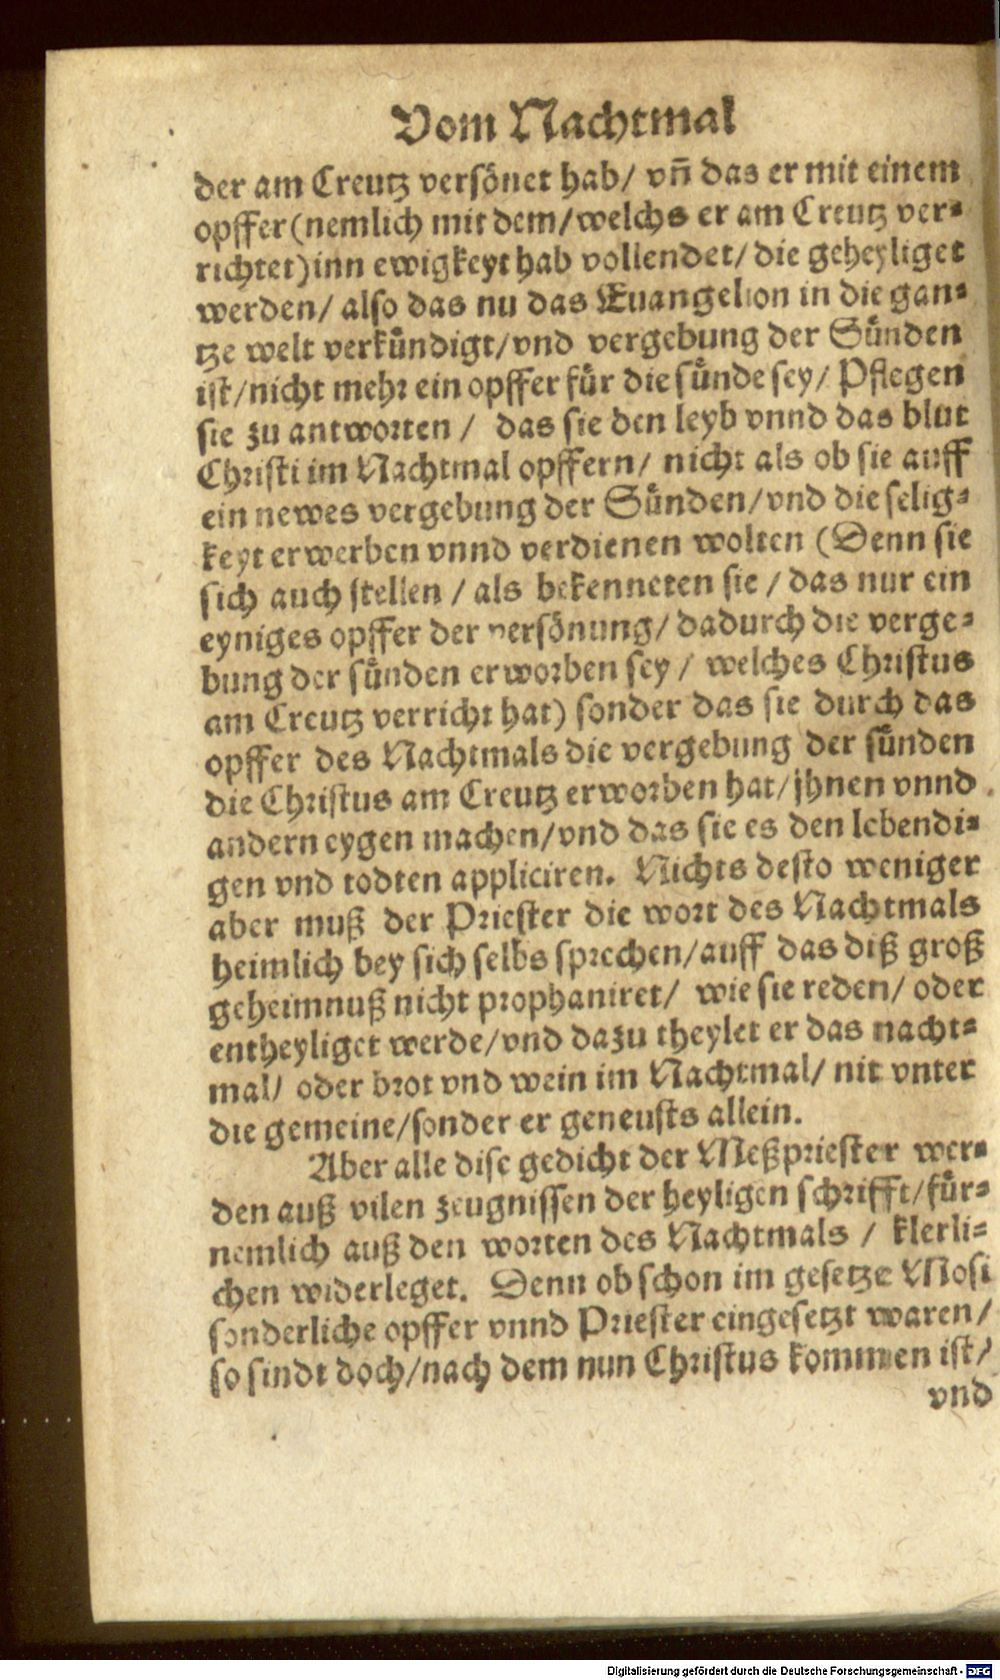 Vom Nachtmal
der am Creutz versönet hab/ vn̄ das er mit einem
opffer (nemlich mit dem/welchs er am Creutz ver⸗
richtet) inn ewigkeyt hab vollendet/ die geheyliget
werden/ also das nu das Euangelion in die gan⸗
tze welt verkündigt/vnd vergebung der Sünden
ist/nicht mehr ein opffer für die sünde sey/ Pflegen
sie zu antworten / das sie den leyb vnnd das blut
Christi im Nachtmal opffern/ nicht als ob sie auff
ein newes vergebung der Sünden/vnd die selig⸗
keyt erwerben vnnd verdienen wolten (Denn sie
sich auch stellen / als bekenneten sie / das nur ein
eyniges opffer der versönung/ dadurch die verge⸗
bung der sünden erworben sey / welches Christus
am Creutz verricht hat) sonder das sie durch das
opffer des Nachtmals die vergebung der sünden
die Christus am Creutz erworben hat/jhnen vnnd
andern eygen machen/vnd das sie es den lebendi⸗
gen vnd todten appliciren. Nichts desto weniger
aber muß der Priester die wort des Nachtmals
heimlich bey sich selbs sprechen/auff das diß groß
geheimnuß nicht prophaniret/ wie sie reden/ oder
entheyliget werde/vnd dazu theylet er das nacht⸗
mal/ oder brot vnd wein im Nachtmal/ nit vnter
die gemeine/sonder er geneusts allein.
Aber alle dise gedicht der Meßpriester wer⸗
den auß vilen zeugnissen der heyligen schrifft/für⸗
nemlich auß den worten des Nachtmals / klerli⸗
chen widerleget. Denn ob schon im gesetze Mosi
sonderliche opffer vnnd Priester eingesetzt waren/
so sindt doch/nach dem nun Christus kommen ist/
vnd
Digitalisierung gefördert durch die Deutsche Forschungsgemeinschaft - DFG